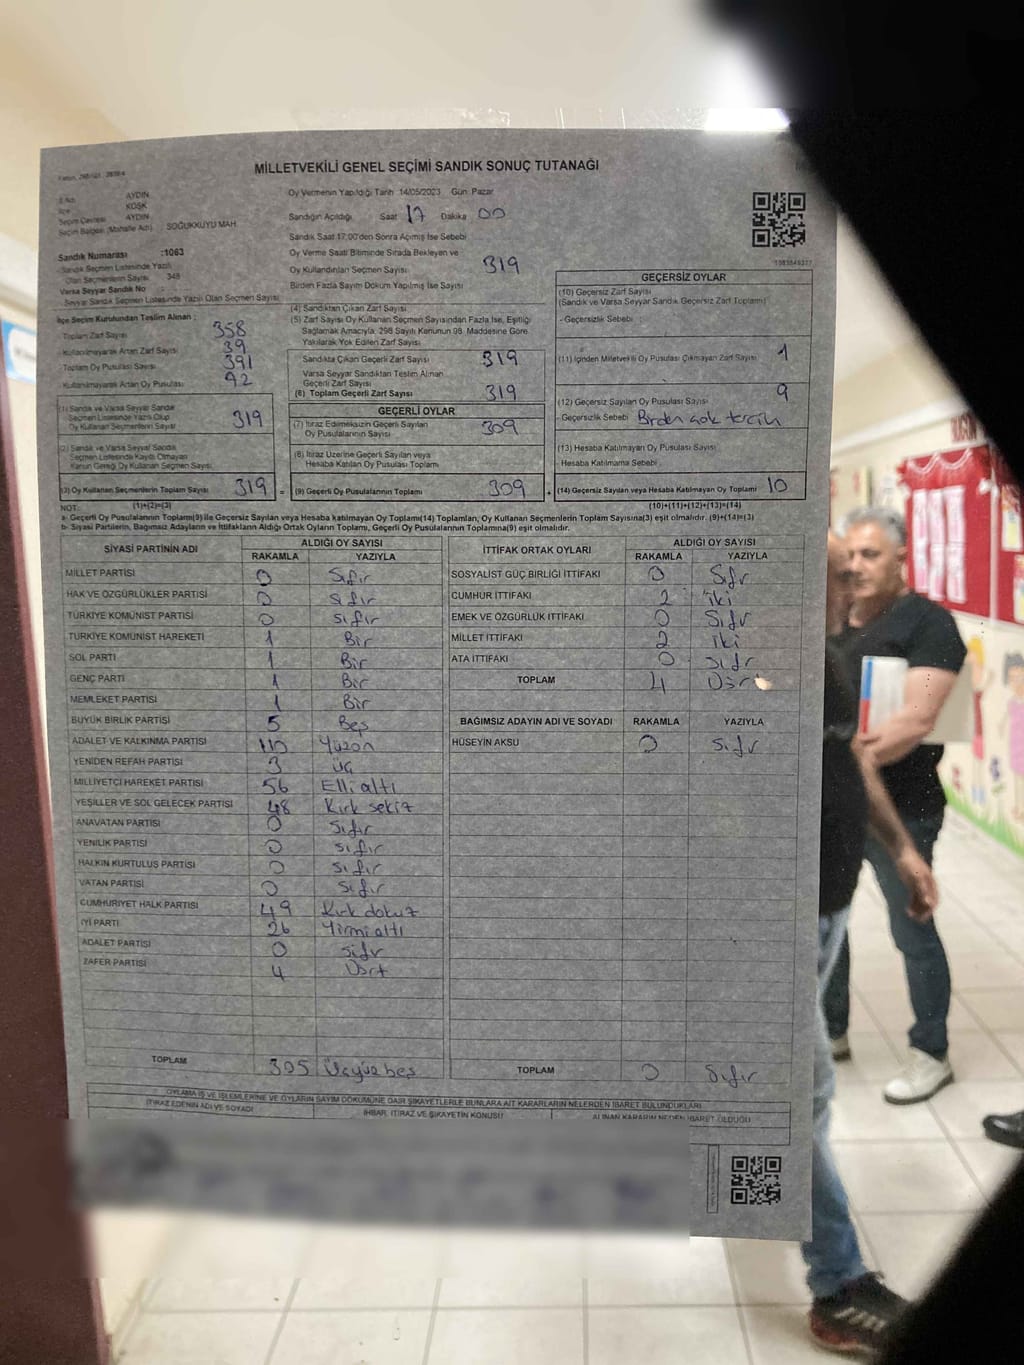 MİLLETVEKİLİ GENEL SEÇİMİ SANDIK SONUÇ TUTANAĞI
AYDIN
KÖŞK
Seçim Çevresi AYDIN
Seçim Bölgesi (Mahalle Adı) SOĞUKKUYU MAH.
Sandık Numarası :1063
Sandık Seçmen Listesinde Yazılı
Olan Seçmenlerin Sayısı 348
Varsa Seyyar Sandık No :
Seyyar Sandık Seçmen Listesinde Yazılı Olan Seçmen Sayısı
Oy Vermenin Yapıldığı Tarih 14/05/2023 Gün Pazar
Sandığın Açıldığı Saat 17 Dakika 00
Sandık Saat 17:00'den Sonra Açılmış İse Sebebi
Oy Verme Saati Bitiminde Sırada Bekleyen ve
Oy Kullandırılan Seçmen Sayısı 319
Birden Fazla Sayım Döküm Yapılmış İse Sayısı
İlçe Seçim Kurulundan Teslim Alınan :
Toplam Zarf Sayısı 358
Kullanılmayarak Artan Zarf Sayısı 39
Toplam Oy Pusulası Sayısı 391
Kullanılmayarak Artan Oy Pusulası
(1) Sandık ve Varsa Seyyar Sandık
Seçmen Listesinde Yazılı Olup
Oy Kullanan Seçmenlerin Sayısı 319
(2) Sandık ve Varsa Seyyar Sandık
Seçmen Listesinde Kaydı Olmayan
Kanun Gereği Oy Kullanan Seçmen Sayısı
(3) Oy Kullanan Seçmenlerin Toplam Sayısı 319 =
(4) Sandıktan Çıkan Zarf Sayısı
(5) Zarf Sayısı Oy Kullanan Seçmen Sayısından Fazla İse, Eşitliği
Sağlamak Amacıyla, 298 Sayılı Kanunun 98. Maddesine Göre
Yakılarak Yok Edilen Zarf Sayısı
Sandıkta Çıkan Geçerli Zarf Sayısı 319
Varsa Seyyar Sandıktan Teslim Alınan
Geçerli Zarf Sayısı
(6) Toplam Geçerli Zarf Sayısı 319
GEÇERLİ OYLAR
(7) İtiraz Edilmeksizin Geçerli Sayılan
Oy Pusulalarının Sayısı 309
(8) İtiraz Üzerine Geçerli Sayılan veya
Hesaba Katılan Oy Pusulası Toplamı
(9) Geçerli Oy Pusulalarının Toplamı 309 +
GEÇERSİZ OYLAR
(10) Geçersiz Zarf Sayısı
(Sandık ve Varsa Seyyar Sandık Geçersiz Zarf Toplamı)
- Geçersizlik Sebebi :
(11) İçinden Milletvekili Oy Pusulası Çıkmayan Zarf Sayısı 1
(12) Geçersiz Sayılan Oy Pusulası Sayısı 9
- Geçersizlik Sebebi Birden çok tercih
(13) Hesaba Katılmayan Oy Pusulası Sayısı
Hesaba Katılmama Sebebi
(14) Geçersiz Sayılan veya Hesaba Katılmayan Oy Toplamı 10
NOT: (1)+(2)=(3) (10)+(11)+(12)+(13)=(14)
a- Geçerli Oy Pusulalarının Toplamı(9) ile Geçersiz Sayılan veya Hesaba katılmayan Oy Toplamı(14) Toplamları, Oy Kullanan Seçmenlerin Toplam Sayısına(3) eşit olmalıdır. (9)+(14)=(3)
b- Siyasi Partilerin, Bağımsız Adayların ve İttifakların Aldığı Ortak Oyların Toplamı, Geçerli Oy Pusulalarının Toplamına(9) eşit olmalıdır.
SİYASİ PARTİNİN ADI ALDIĞI OY SAYISI
RAKAMLA YAZIYLA
MİLLET PARTİSİ 0 Sıfır
HAK VE ÖZGÜRLÜKLER PARTİSİ 0 Sıfır
TÜRKİYE KOMÜNİST PARTİSİ 0 Sıfır
TÜRKİYE KOMÜNİST HAREKETİ 1 Bir
SOL PARTİ 1 Bir
GENÇ PARTİ 1 Bir
MEMLEKET PARTİSİ 1 Bir
BÜYÜK BİRLİK PARTİSİ 5 Beş
ADALET VE KALKINMA PARTİSİ 110 Yüzon
YENİDEN REFAH PARTİSİ 3 Üç
MİLLİYETÇİ HAREKET PARTİSİ 56 Elli altı
YEŞİLLER VE SOL GELECEK PARTİSİ 48 Kırk sekiz
ANAVATAN PARTİSİ 0 Sıfır
YENİLİK PARTİSİ 0 Sıfır
HALKIN KURTULUŞ PARTİSİ 0 Sıfır
VATAN PARTİSİ 0 Sıfır
CUMHURİYET HALK PARTİSİ 49 Kırk dokuz
İYİ PARTİ 26 Yirmi altı
ADALET PARTİSİ 0 Sıfır
ZAFER PARTİSİ 4 Dört
TOPLAM 305 Üçyüz beş
İTTİFAK ORTAK OYLARI ALDIĞI OY SAYISI
RAKAMLA YAZIYLA
SOSYALİST GÜÇ BİRLİĞİ İTTİFAKI 0 Sıfır
CUMHUR İTTİFAKI 2 iki
EMEK VE ÖZGÜRLÜK İTTİFAKI 0 Sıfır
MİLLET İTTİFAKI 2 iki
ATA İTTİFAKI 0 Sıfır
TOPLAM 4 Dört
BAĞIMSIZ ADAYIN ADI VE SOYADI RAKAMLA YAZIYLA
HÜSEYİN AKSU 0 Sıfır
TOPLAM 0 Sıfır
OYLAMA İŞ VE İŞLEMLERİNE VE OYLARIN SAYIM DÖKÜMÜNE DAİR ŞİKAYETLERLE BUNLARA AİT KARARLARIN NELERDEN İBARET BULUNDUKLARI
İTİRAZ EDENİN ADI VE SOYADI İHBAR, İTİRAZ VE ŞİKAYETİN KONUSU ALINAN KARARIN NEDEN İBARET OLDUĞU